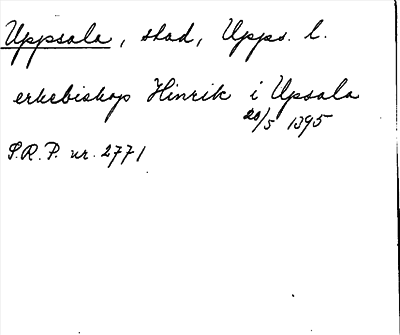 Uppsala, stad, Upps. l.
erkebiskop Hinrik i Upsala
20/5 1395
S.R.P. nr. 2771